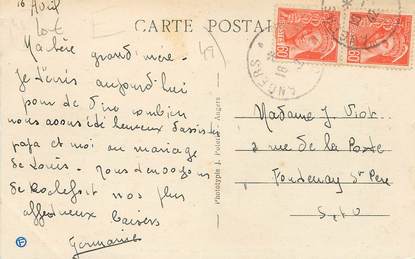 16 Avril
CARTE POSTALE
Ma chère grand'mère.
Je t'écris aujourd'hui
pour te dire combien
nous avons été heureux d'assister
papa et moi au mariage
de Louis. Nous t'envoyons
de Rochefort nos plus
affectueux baisers
Germaine
Phototypie J. Angers
ANGERS
18
Madame J. Viot
2 rue de la Poste
Fontenay St Père
S. et O.